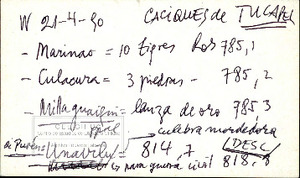 W 21-4-90 CACIQUES de TUCAPEL
- Marinao = 10 tigres Ros 785,1
- Culacura = 3 piedras - 785,2
- Millaguaquin = lanza de oro 785,3
culebra mordedora
Unavilu = 814,7 (DESC)
para guerra civil 818,8